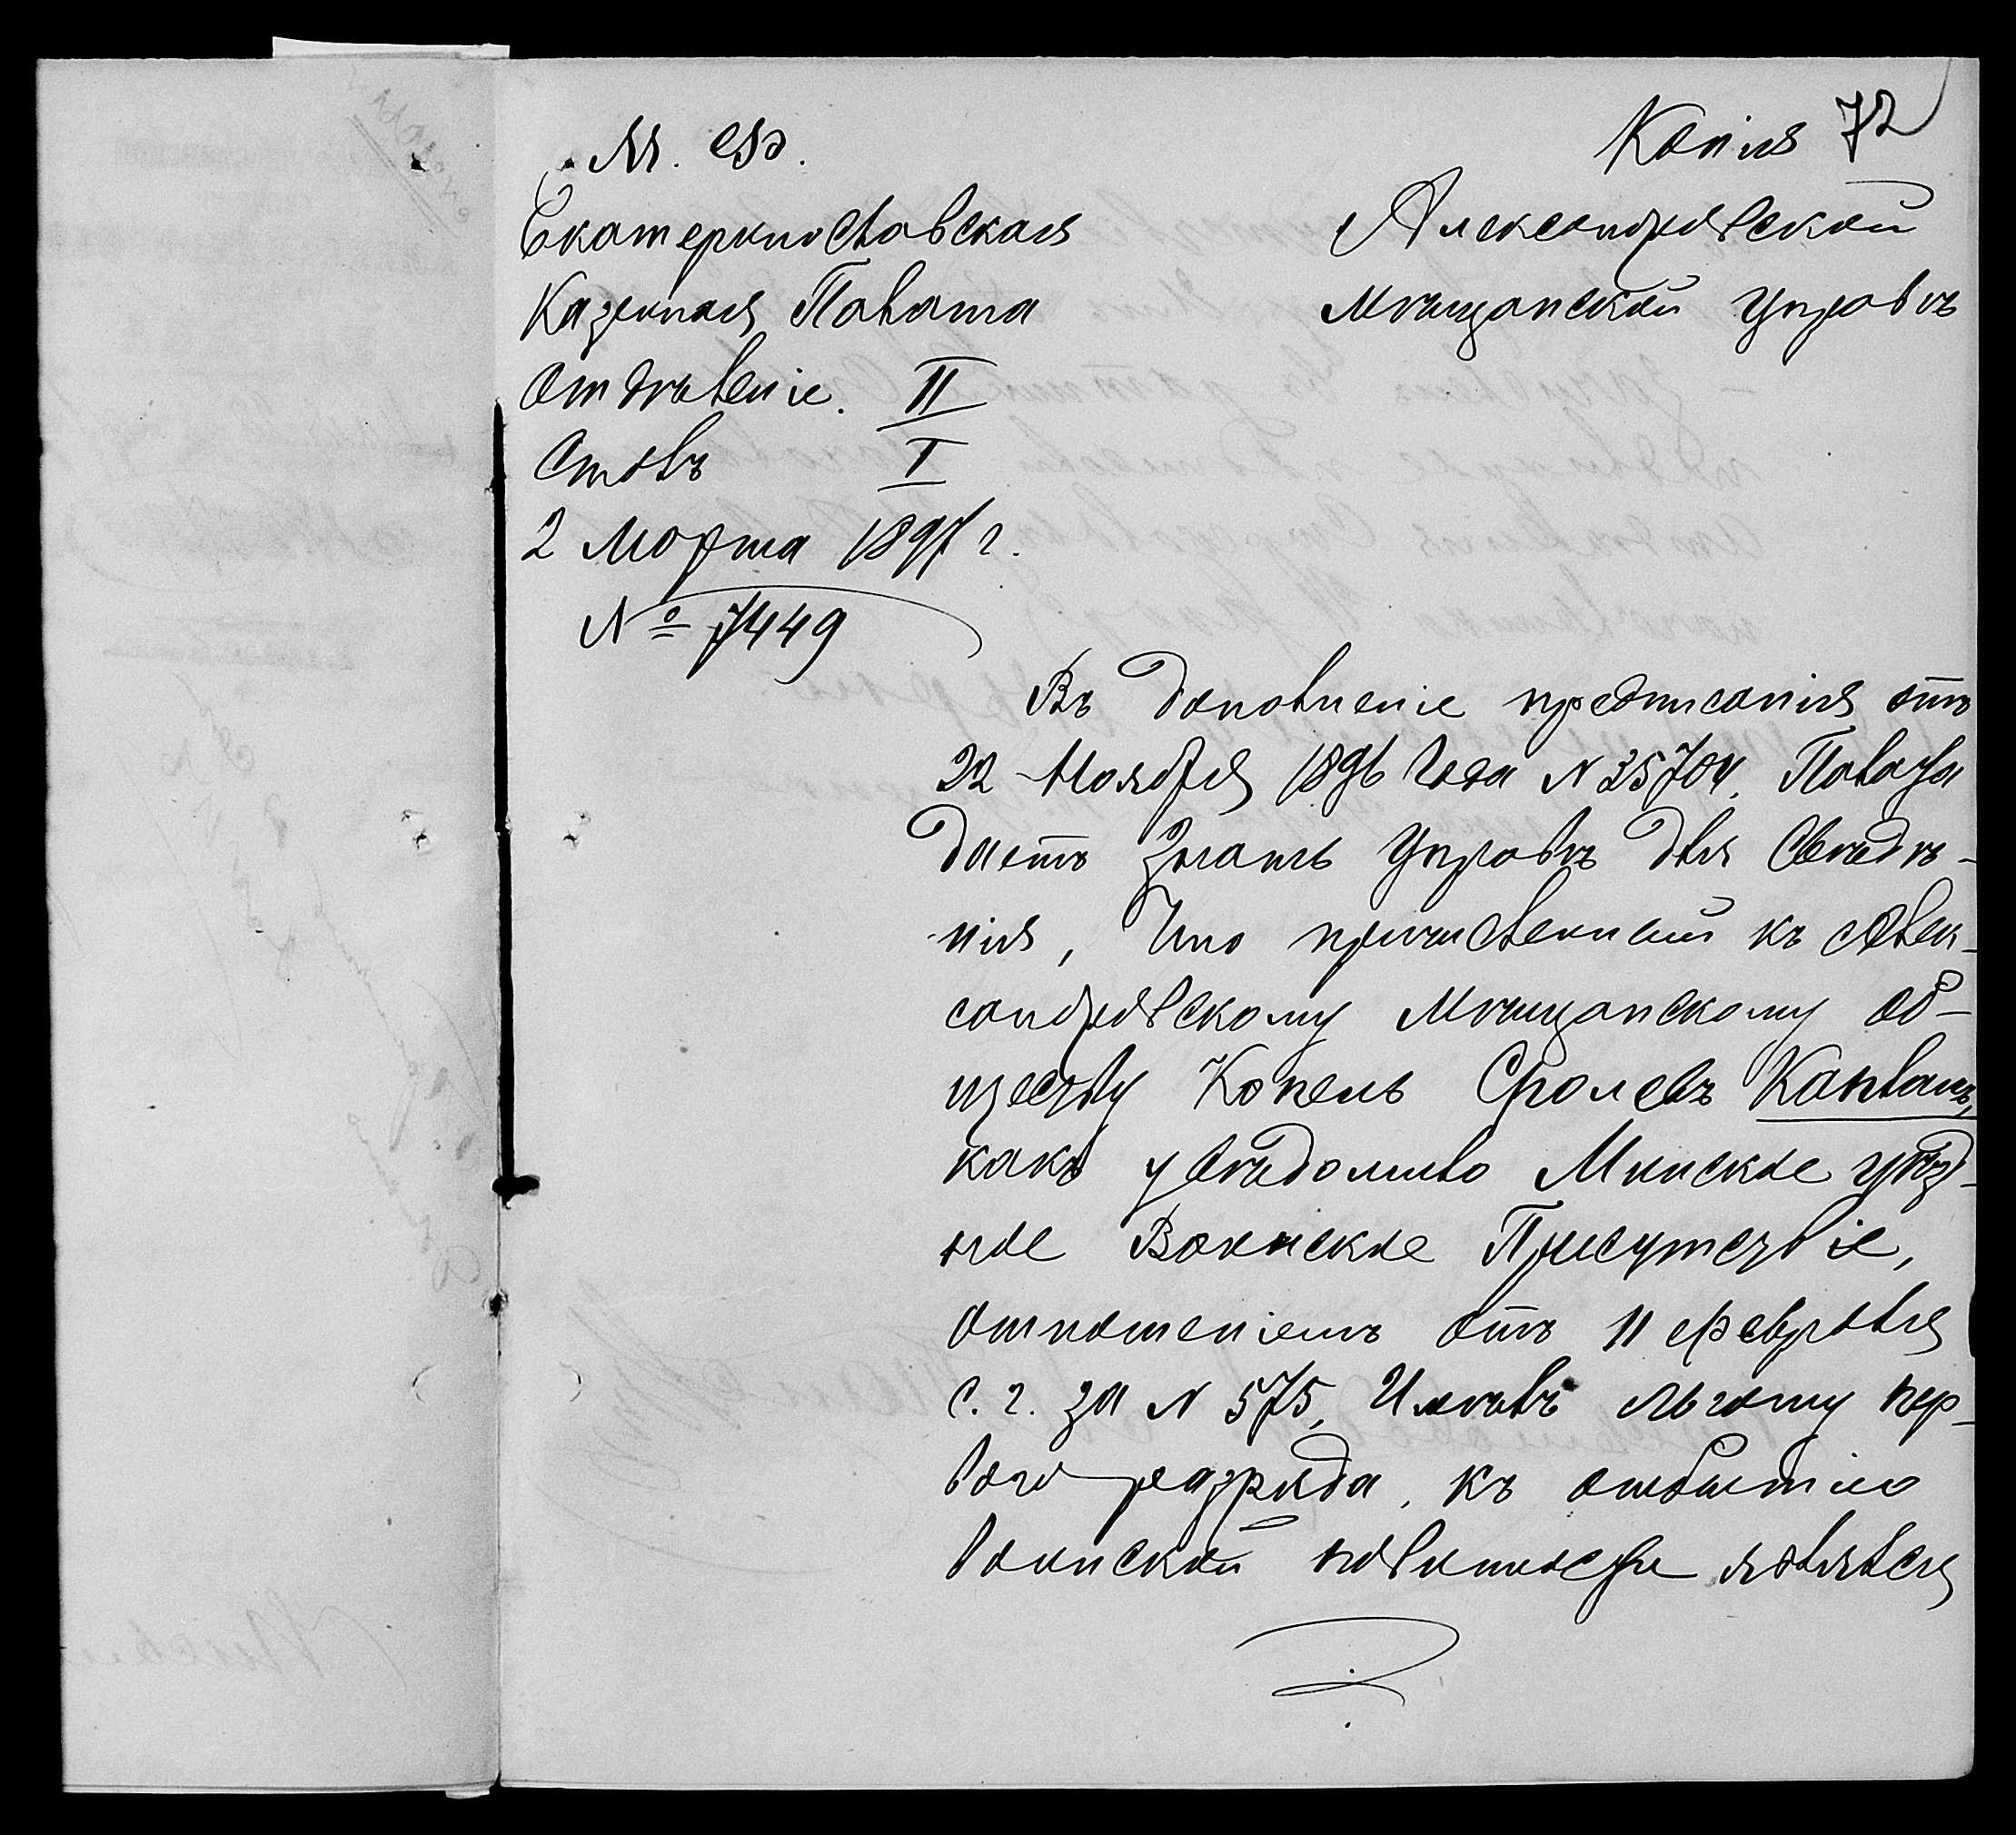 Копія 72
М. Ф.
Екатеринославская
Казенная Палата
Отдѣленіе. II
Столъ I
2 Марта 1897 г.
№ 7449
Александровской
Мѣщанской Управѣ
Въ дополненіе предписанія отъ
22 Ноября 1896 года N 35704, Палата
даетъ знать Управѣ для свѣдѣ-
нія, что причисленный къ Алек-
сандровскому Мѣщанскому об-
ществу Копель Сролевъ Капланъ,
какъ увѣдомило Минское уѣзд-
ное Воинское Присутствіе,
отношеніемъ отъ 11 февраля
с. г. за N 575, имѣвъ льготу пер-
ваго разряда, къ отбытію
воинской повинности являлся